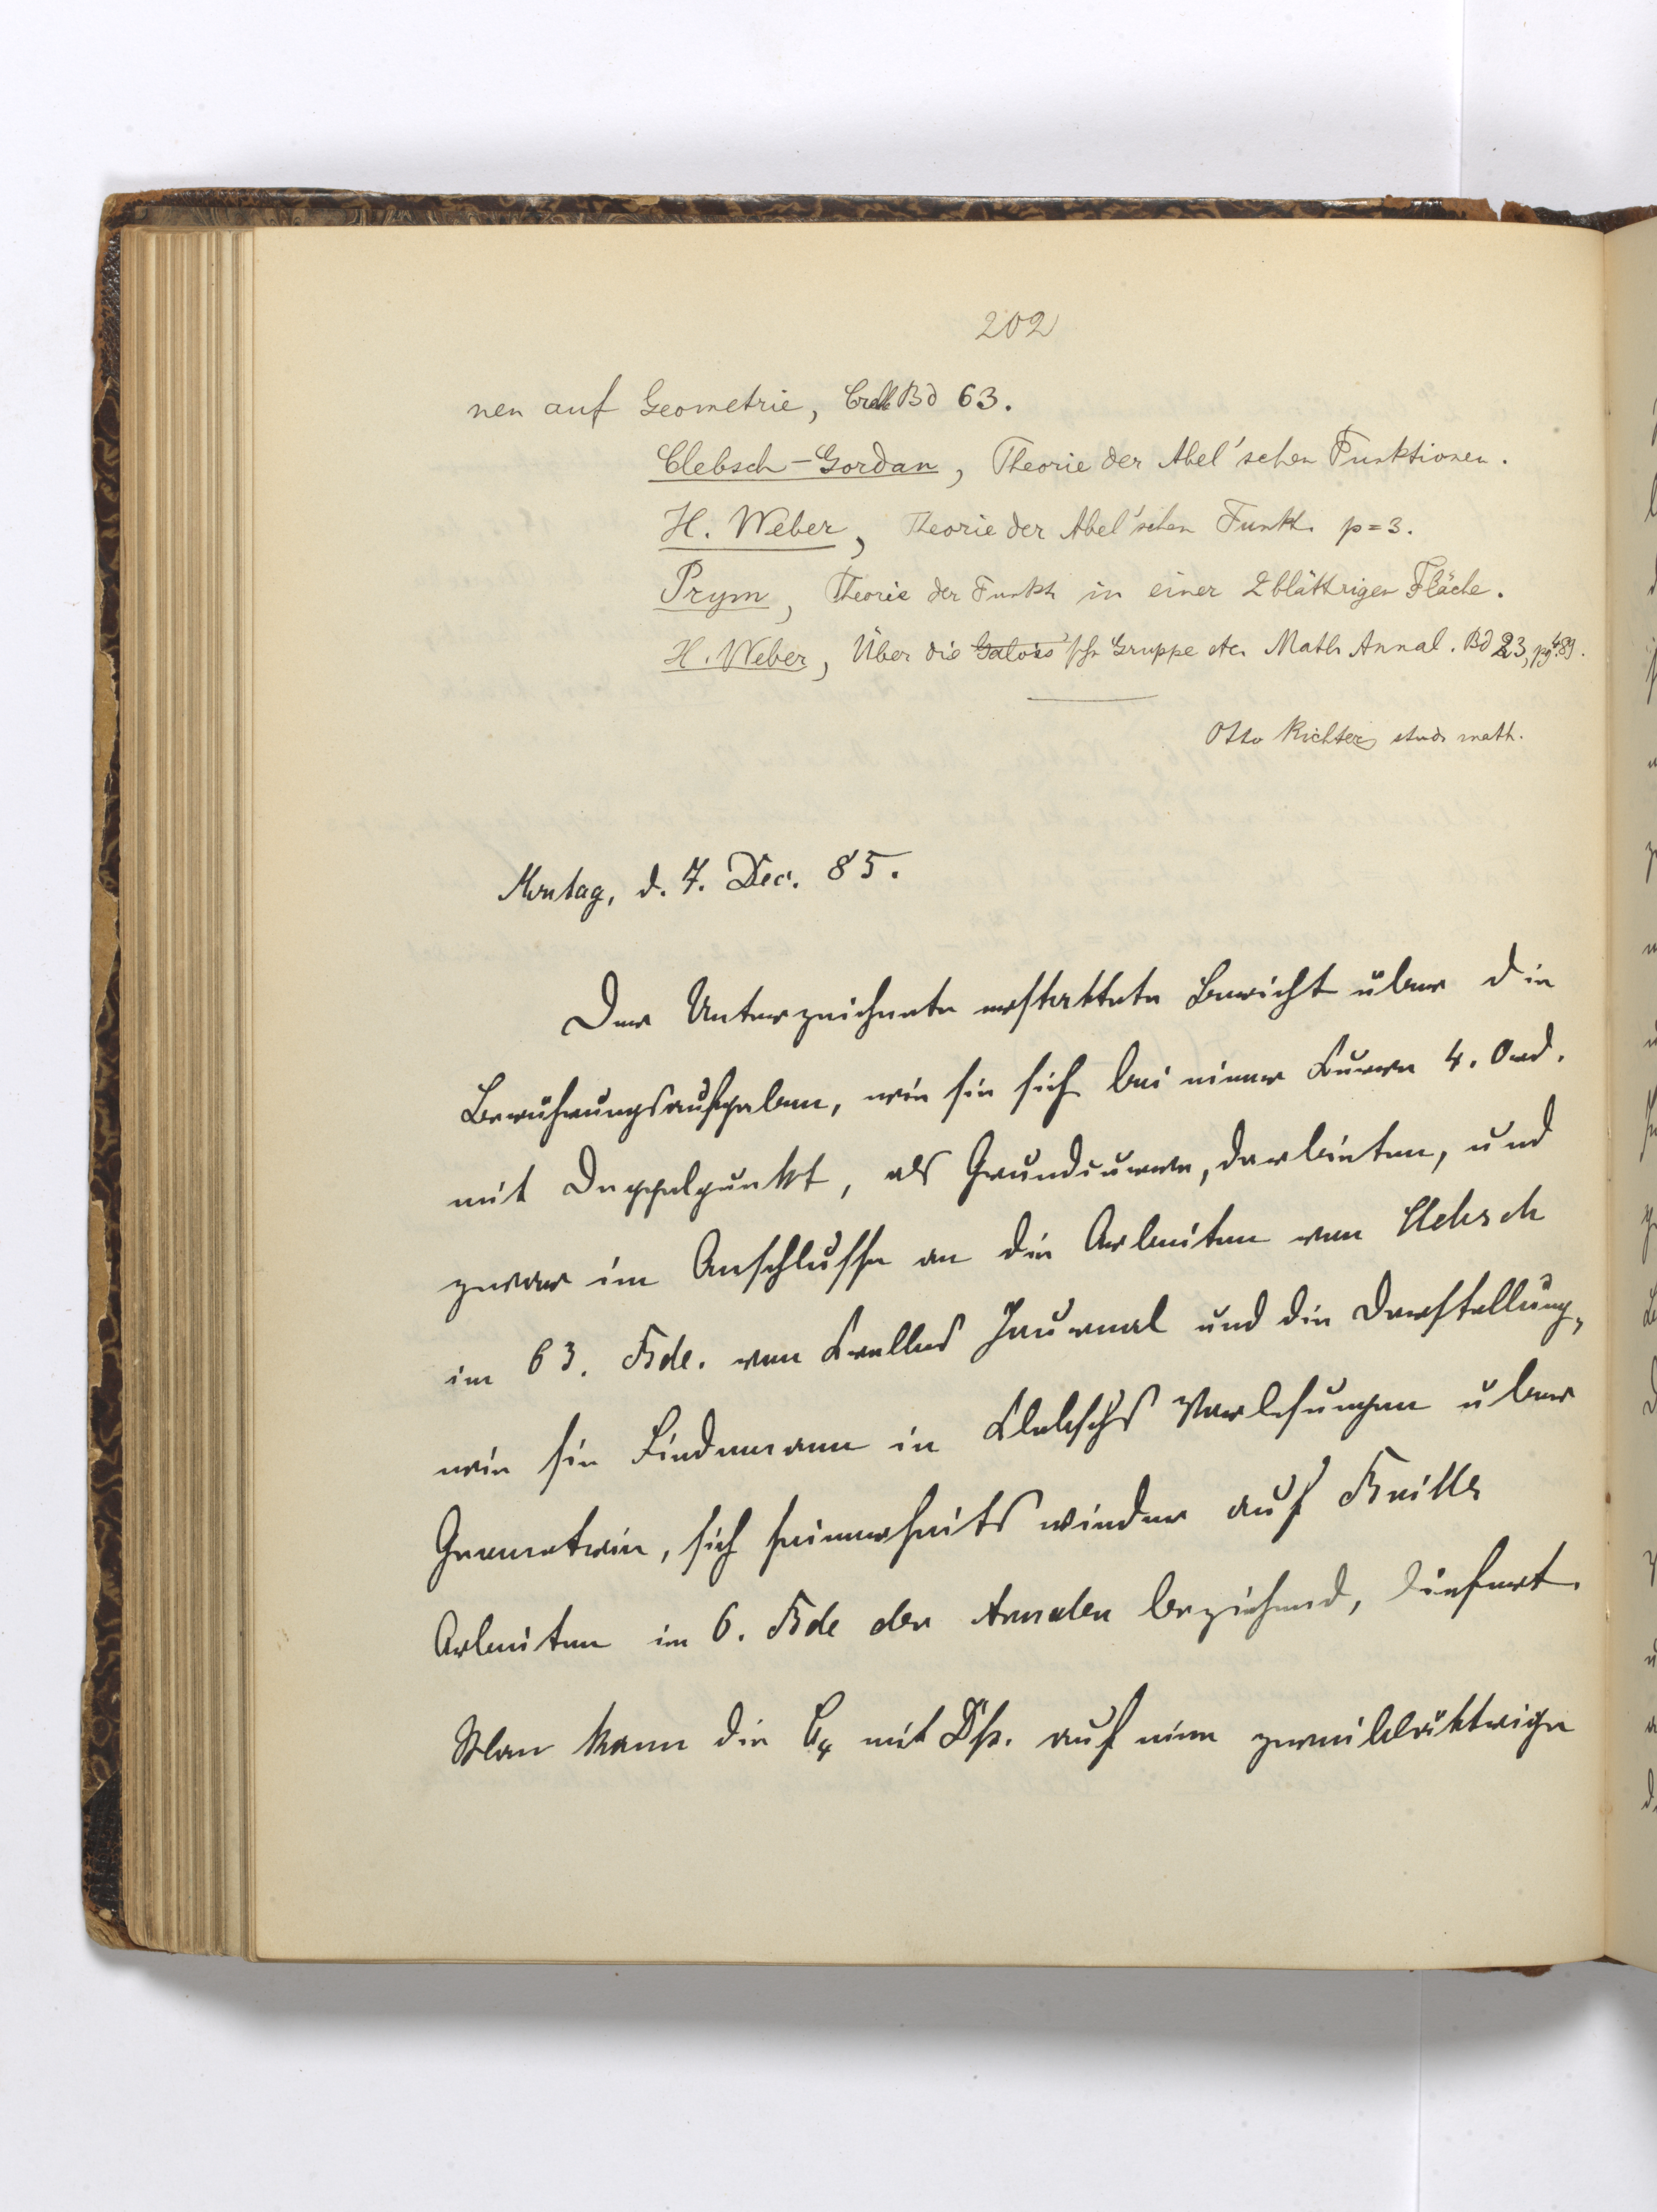 202
nen auf Geometrie, Crelle Bd 63.
Clebsch-Gordan, Theorie der Abel'schen Funktionen.
H. Weber, Theorie der Abel'schen Funkt. p=3.
Prym, Theorie der Funkt. in einer 2blättrigen Fläche.
H. Weber, Über die Galois'sche Gruppe etc. Math. Annal. Bd 23, pg 489.
Otto Richter, stud. math.
Montag, d. 7. Dec. 85.
Der Unterzeichnete erstattete Bericht über die
Berührungsaufgaben, wie sie sich bei einer Curve 4. Ord.
mit Doppelpunkt, als Grundcurve, darbieten, und
zwar im Anschlusse an die Arbeiten von Clebsch
im 63. Bde. von Crelles Journal und die Darstellung,
wie sie Lindemann in Clebsch's Vorlesungen über
Geometrie, sich seinerseits wieder auf Brills
Arbeiten im 6. Bde der Annalen beziehend, liefert.
Man kann die C4 mit Dp. auf eine zweiblättrige